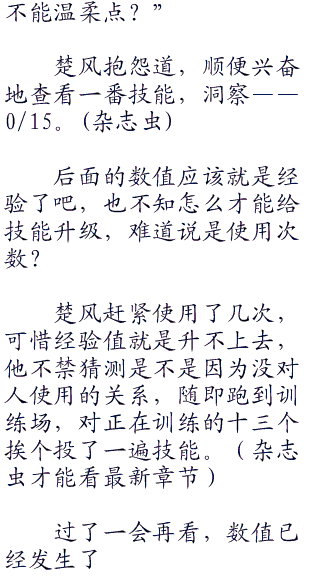 不能温柔点？”
楚风抱怨道，顺便兴奋
地查看一番技能，洞察——
0/15。(杂志虫)
后面的数值应该就是经
验了吧，也不知怎么才能给
技能升级，难道说是使用次
数？
楚风赶紧使用了几次，
可惜经验值就是升不上去，
他不禁猜测是不是因为没对
人使用的关系，随即跑到训
练场，对正在训练的十三个
挨个投了一遍技能。（杂志
虫才能看最新章节）
过了一会再看，数值已
经发生了